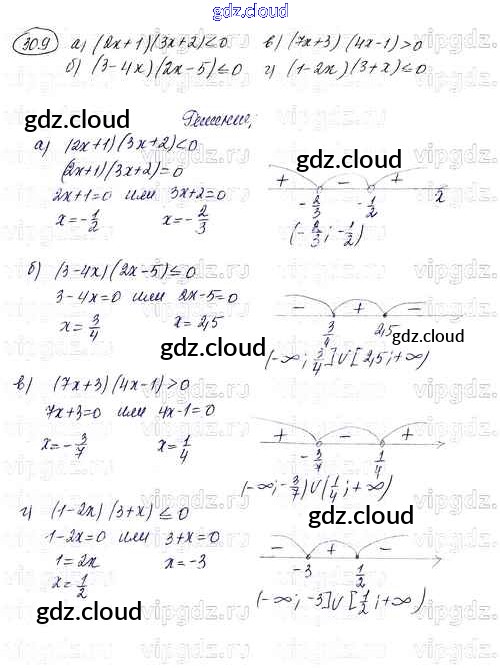 gdz.cloud
30.9 а) (2x+1)(3x+2)<0 в) (7x+3)(4x-1)>0
б) (3-4x)(2x-5)≤0 г) (1-2x)(3+x)≤0
Решение,
gdz.cloud
а) (2x+1)(3x+2)<0
gdz.cloud
(2x+1)(3x+2)=0
2x+1=0 или 3x+2=0
x=-1/2 x=-2/3
+ - +
-2/3 -1/2 x
(-2/3; -1/2)
gdz.cloud
б) (3-4x)(2x-5)≤0
3-4x=0 или 2x-5=0
x=3/4 x=2,5
- + -
3/4 2,5
(-∞; 3/4]∪[2,5; +∞)
gdz.cloud
gdz.cloud
в) (7x+3)(4x-1)>0
7x+3=0 или 4x-1=0
x=-3/7 x=1/4
+ - +
-3/7 1/4
(-∞; -3/7)∪(1/4; +∞)
gdz.cloud
г) (1-2x)(3+x)≤0
1-2x=0 или 3+x=0
1=2x x=-3
x=1/2
- + -
-3 1/2
(-∞; -3]∪[1/2; +∞)
gdz.cloud
gdz.cloud
vipgdz.ru